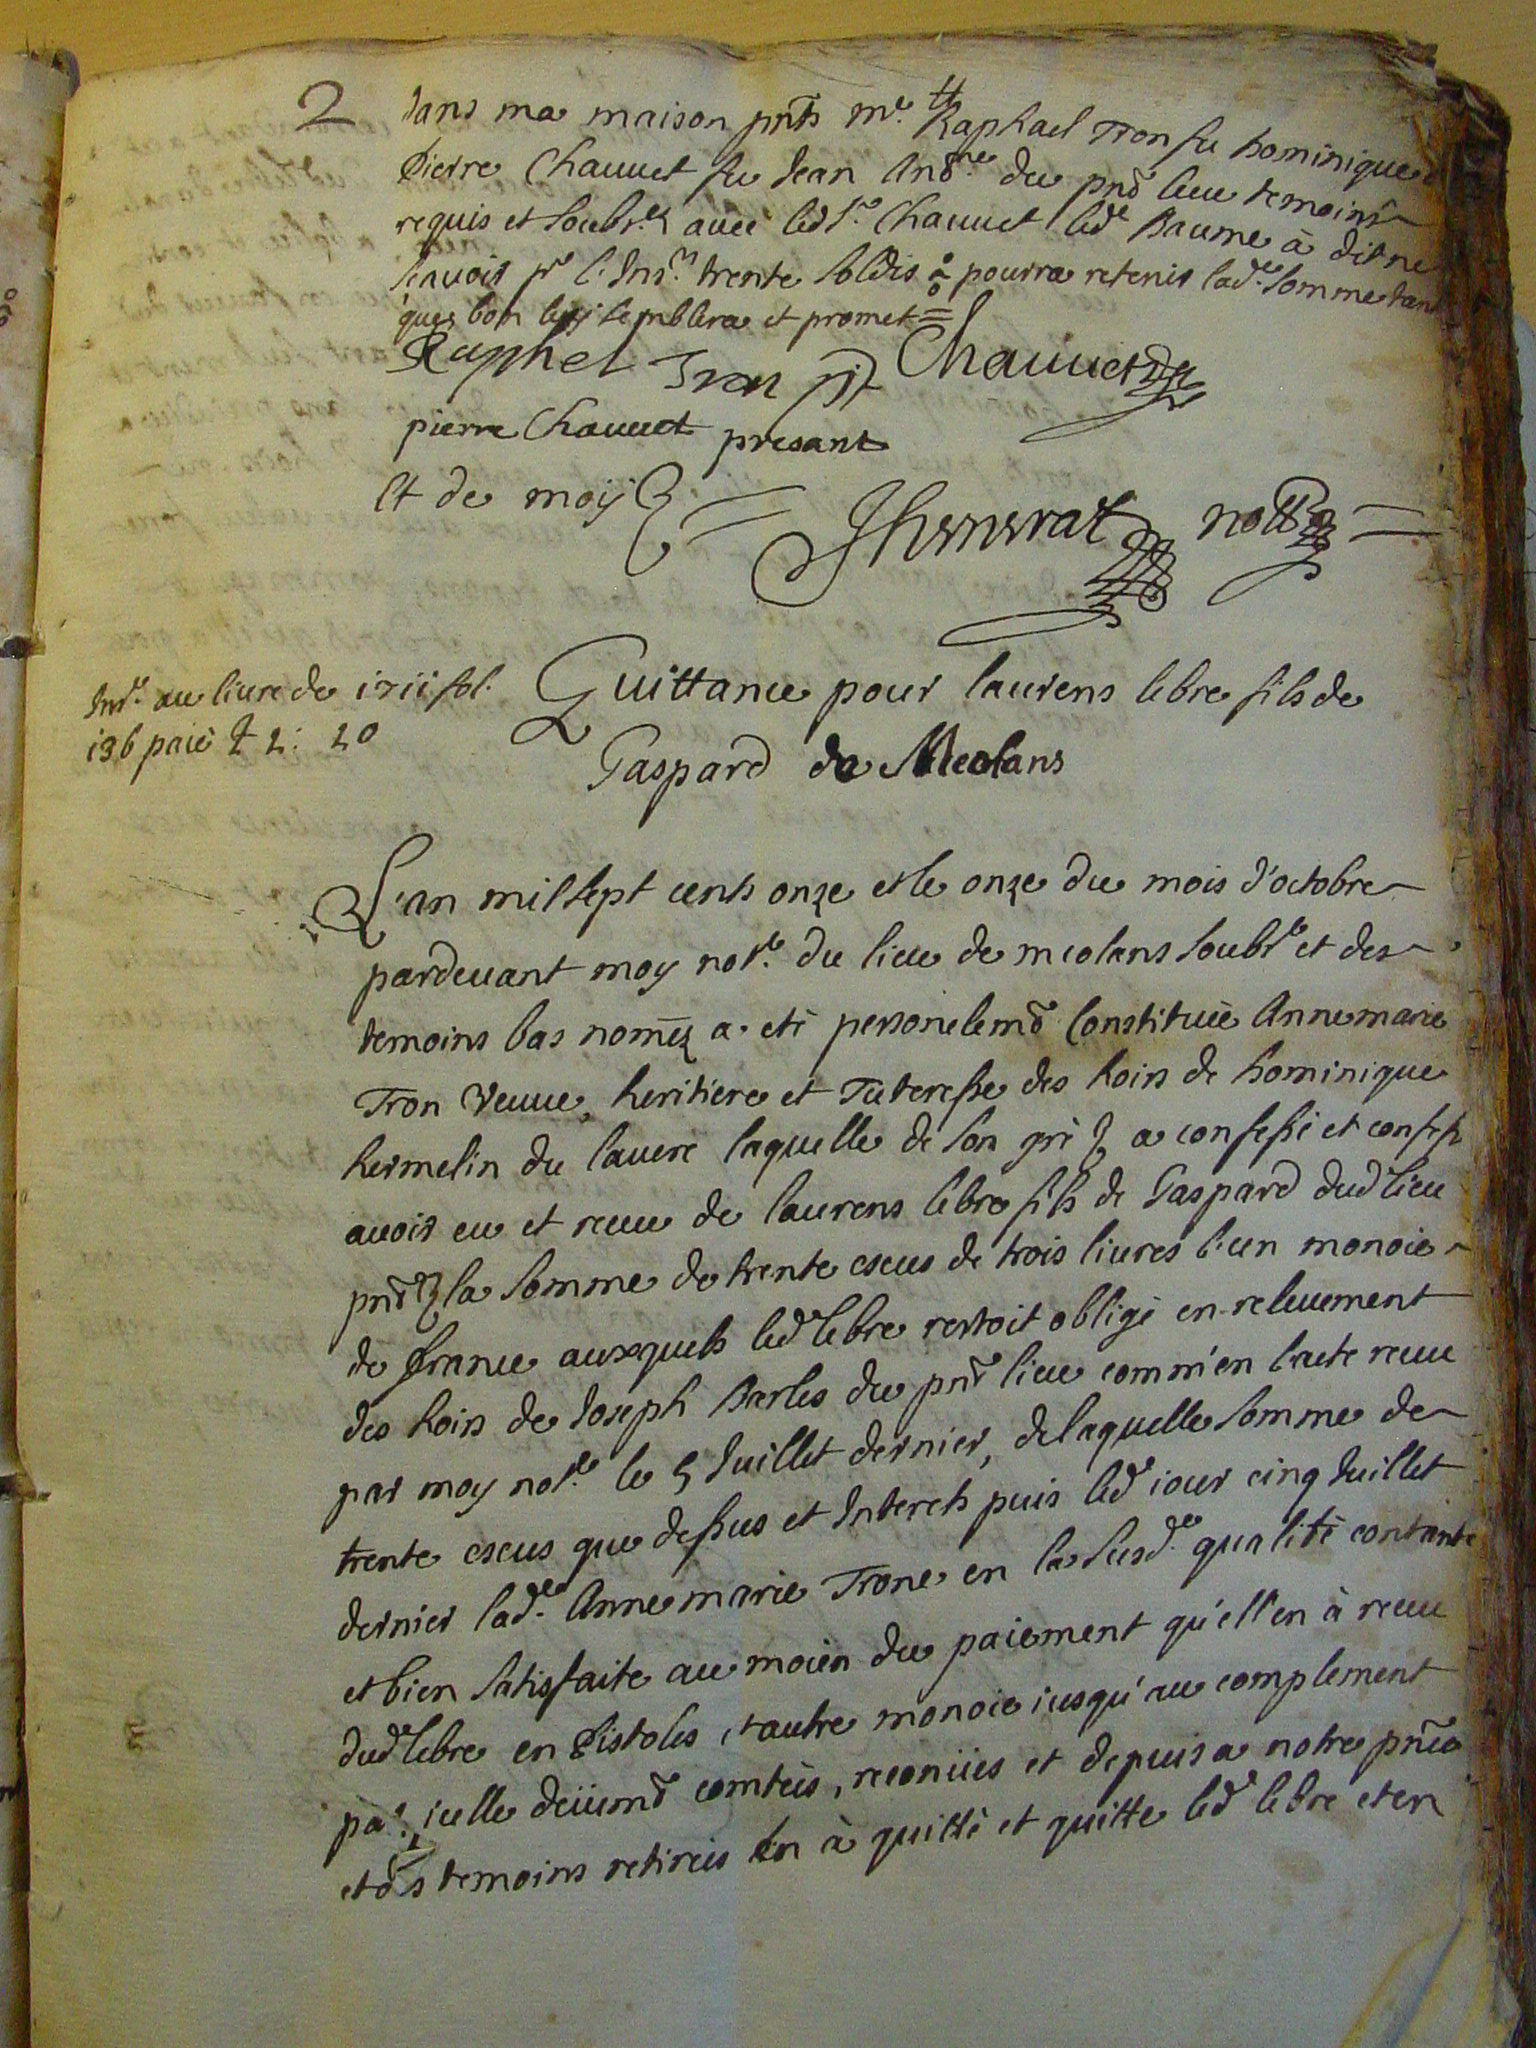 2
dans ma maison pnts me. Raphael Tron fu Dominique
Pierre Chauuet fu Jean And.re du pnd lieu temoins
requis et soubs.es auec led sr. Chauuet led Baume à dit ne
scauoir pr l'Ins.n trente soldis pourra retenir lad.e somme tant
que bon luy semblera et promet =
Raphel Tron pnt Chauuet
pierre Chauuet presant
Et de moy Jhonorat nottre
Inse. au liure de 1711 fol.
136 paié £ 1: 10
Quittance pour laurens lebre fils de
Gaspard de Meolans
L'an mil sept cents onze et le onze du mois d'octobre
pardeuant moy not.e du lieu de meolans soubs.e et des
temoins bas nomez a eté personelemd Constituée Annemarie
Tron veuue, heritiere et Tuteresse des hoirs de Dominique
hermelin du lauere laquelle de son gré & a confessé et confesse
auoir eu et receu de laurens lebre fils de Gaspard dud lieu
pnd la somme de trente escus de trois liures l'un monoie
de france auxquels led lebre restoit obligé en releuement
des hoirs de Joseph Barles du pnt lieu comm'en l'acte receu
par moy not.e le 5 Juillet dernier, de laquelle somme de
trente escus que dessus et Interets puis led iour cinq Juillet
dernier lad.e Annemarie Trone en la susd.e qualité contante
et bien satisfaite au moien du paiement qu'ell'en à receu
dud lebre en Pistoles, et autre monoie iusqu'au complement
par icelle deüemd comtées, reconües et depuis a notre pnce
et ds temoins retirées en à quitté et quitte led lebre et en